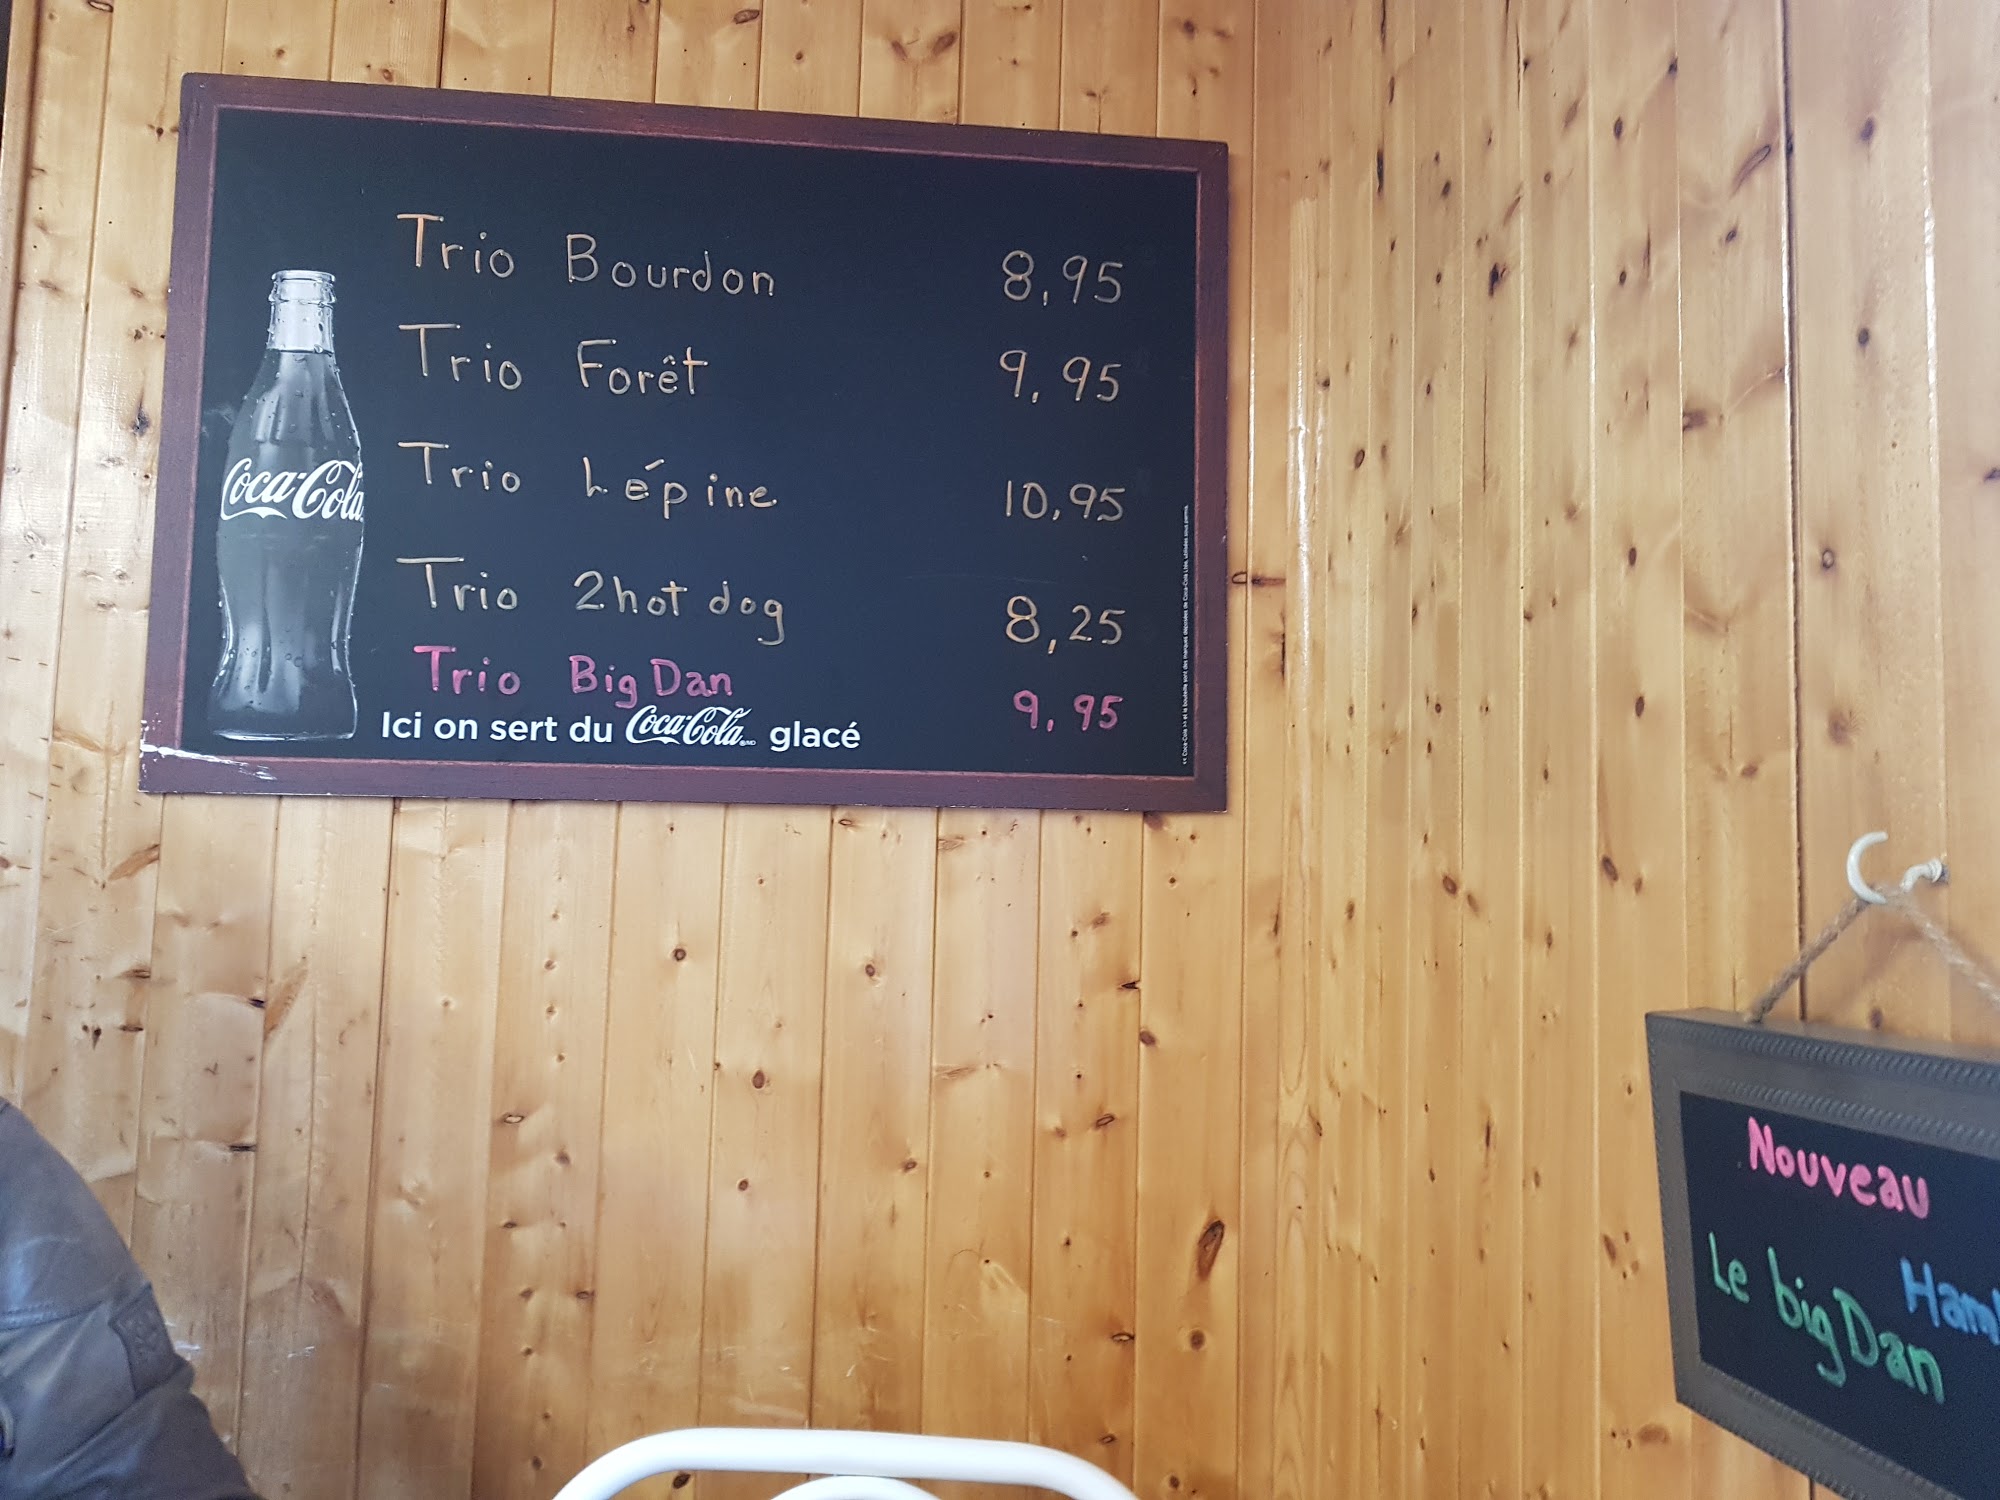 Trio Bourdon 8,95
Trio Forêt 9,95
Trio Lépine 10,95
Trio 2hot dog 8,25
Trio Big Dan 9,95
Ici on sert du Coca-Cola glacé
Coca-Cola
Nouveau
Le big Dan